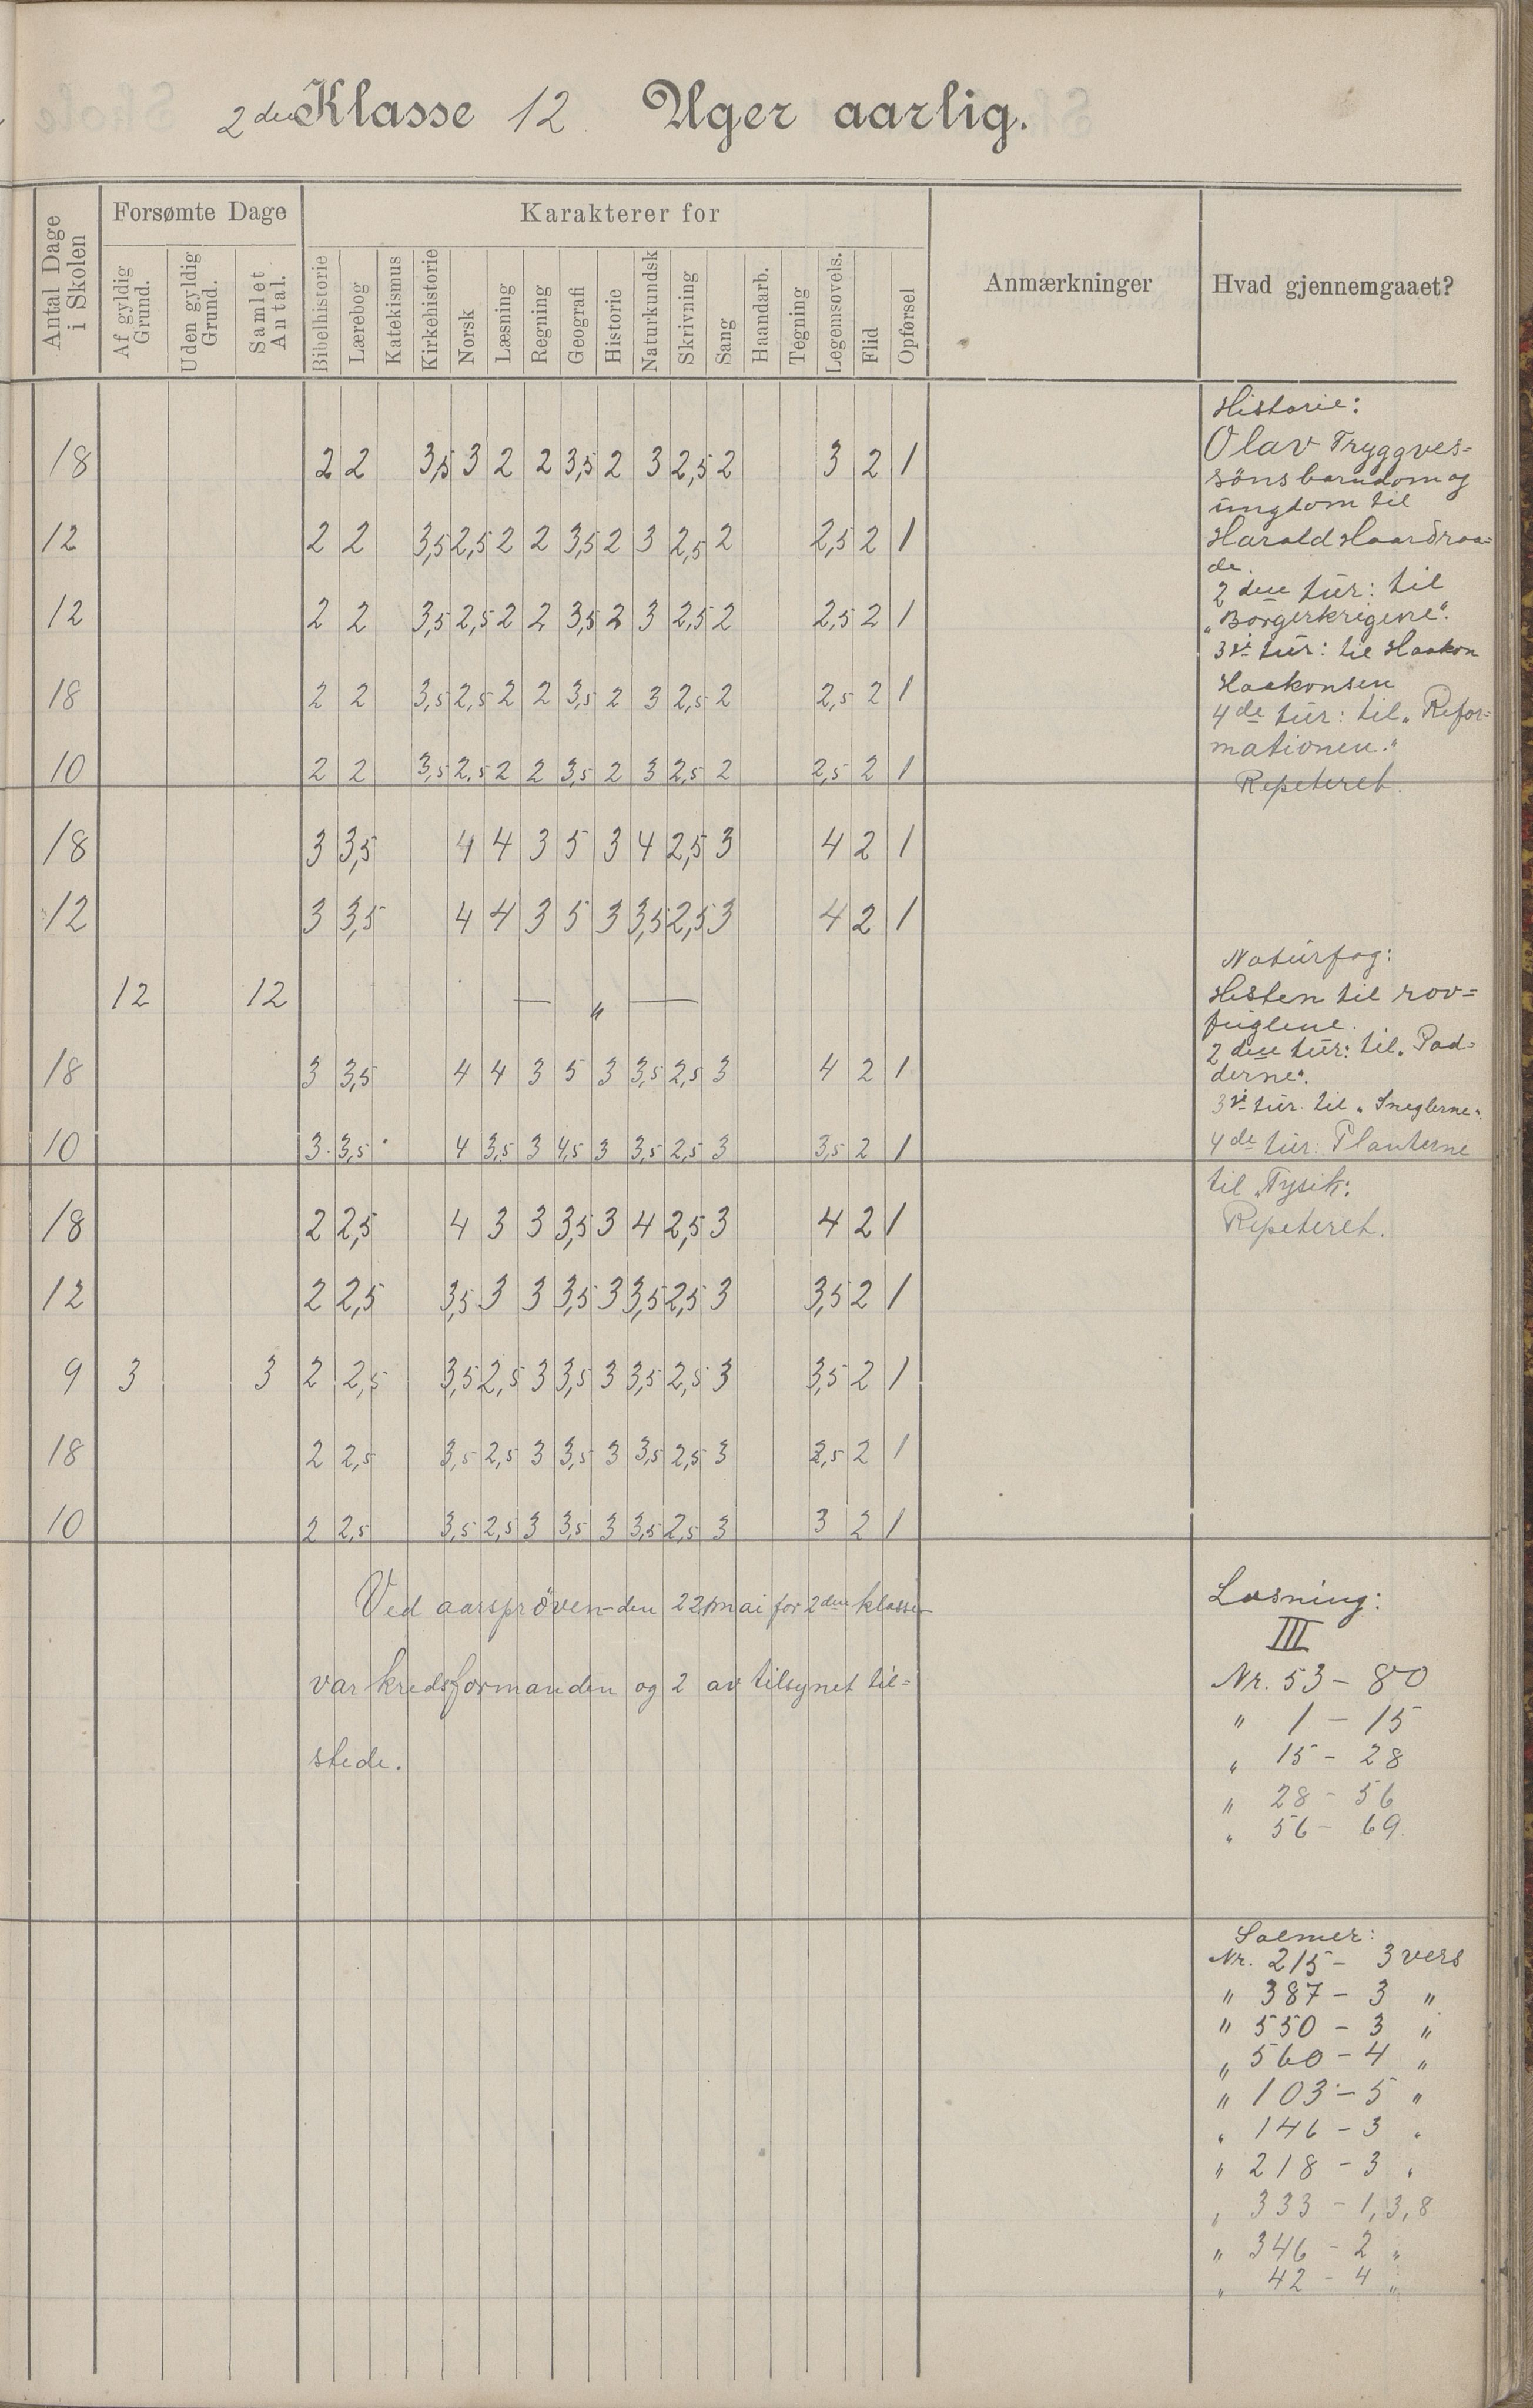 2den Klasse 12 Uger aarlig.
Antal Dage i Skolen
Forsømte Dage
Karakterer for
Anmærkninger
Hvad gjennemgaaet?
Af gyldig Grund.
Uden gyldig Grund.
Samlet Antal.
Bibelhistorie
Lærebog
Katekismus
Kirkehistorie
Norsk
Læsning
Regning
Geografi
Historie
Naturkundsk
Skrivning
Sang
Haandarb.
Tegning
Legemsovels.
Flid
Opførsel
18 2 2 3,5 3 2 2 3,5 2 3 2,5 2 3 2 1
12 2 2 3,5 2,5 2 2 3,5 2 3 2,5 2 2,5 2 1
12 2 2 3,5 2,5 2 2 3,5 2 3 2,5 2 2,5 2 1
18 2 2 3,5 2,5 2 2 3,5 2 3 2,5 2 2,5 2 1
10 2 2 3,5 2,5 2 2 3,5 2 3 2,5 2 2,5 2 1
18 3 3,5 4 4 3 5 3 4 2,5 3 4 2 1
12 3 3,5 4 4 3 5 3 3,5 2,5 3 4 2 1
12 12 — " —
18 3 3,5 4 4 3 5 3 3,5 2,5 3 4 2 1
10 3 3,5 4 3,5 3 4,5 3 3,5 2,5 3 3,5 2 1
18 2 2,5 4 3 3 3,5 3 4 2,5 3 4 2 1
12 2 2,5 3,5 3 3 3,5 3 3,5 2,5 3 3,5 2 1
9 3 3 2 2,5 3,5 2,5 3 3,5 3 3,5 2,5 3 3,5 2 1
18 2 2,5 3,5 2,5 3 3,5 3 3,5 2,5 3 3,5 2 1
10 2 2,5 3,5 2,5 3 3,5 3 3,5 2,5 3 3 2 1
Ved aarspröven den 22 mai for 2den klasse
var kredsformanden og 2 av tilsynet til=
stede.
Historie:
Olav Tryggves=
söns barndom og
ungdom til
Harald Haardraa=
de.
2den tur: til
"Borgerkrigene".
3die tur: til Haakon
Haakonsen
4de tur: til "Refor=
mationen."
Repeteret.
Naturfag:
Hesten til rov=
fuglene.
2den tur: til "Pad=
derne".
3die tur til "Sneglerne".
4de tur: Planterne
til "Fysik:
Repeteret.
Læsning:
III
Nr. 53 - 80
" 1 - 15
" 15 - 28
" 28 - 56
" 56 - 69.
Salmer:
Nr. 215 - 3 vers
" 387 - 3 "
" 550 - 3 "
" 560 - 4 "
" 103 - 5 "
" 146 - 3 "
" 218 - 3 "
" 333 - 1, 3, 8
" 346 - 2 "
" 42 - 4 "